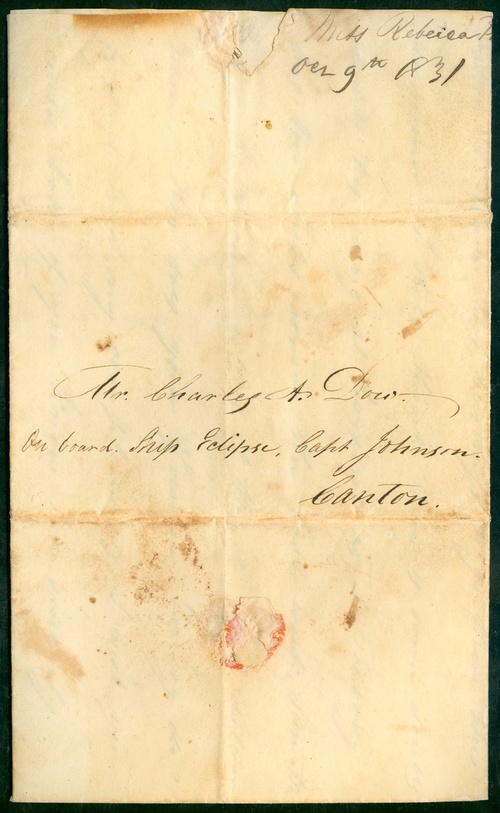 Miss Rebecca
Oct 9th 1831
Mr. Charles A. Dow.
On board. Ship Eclipse, Capt Johnson.
Canton.